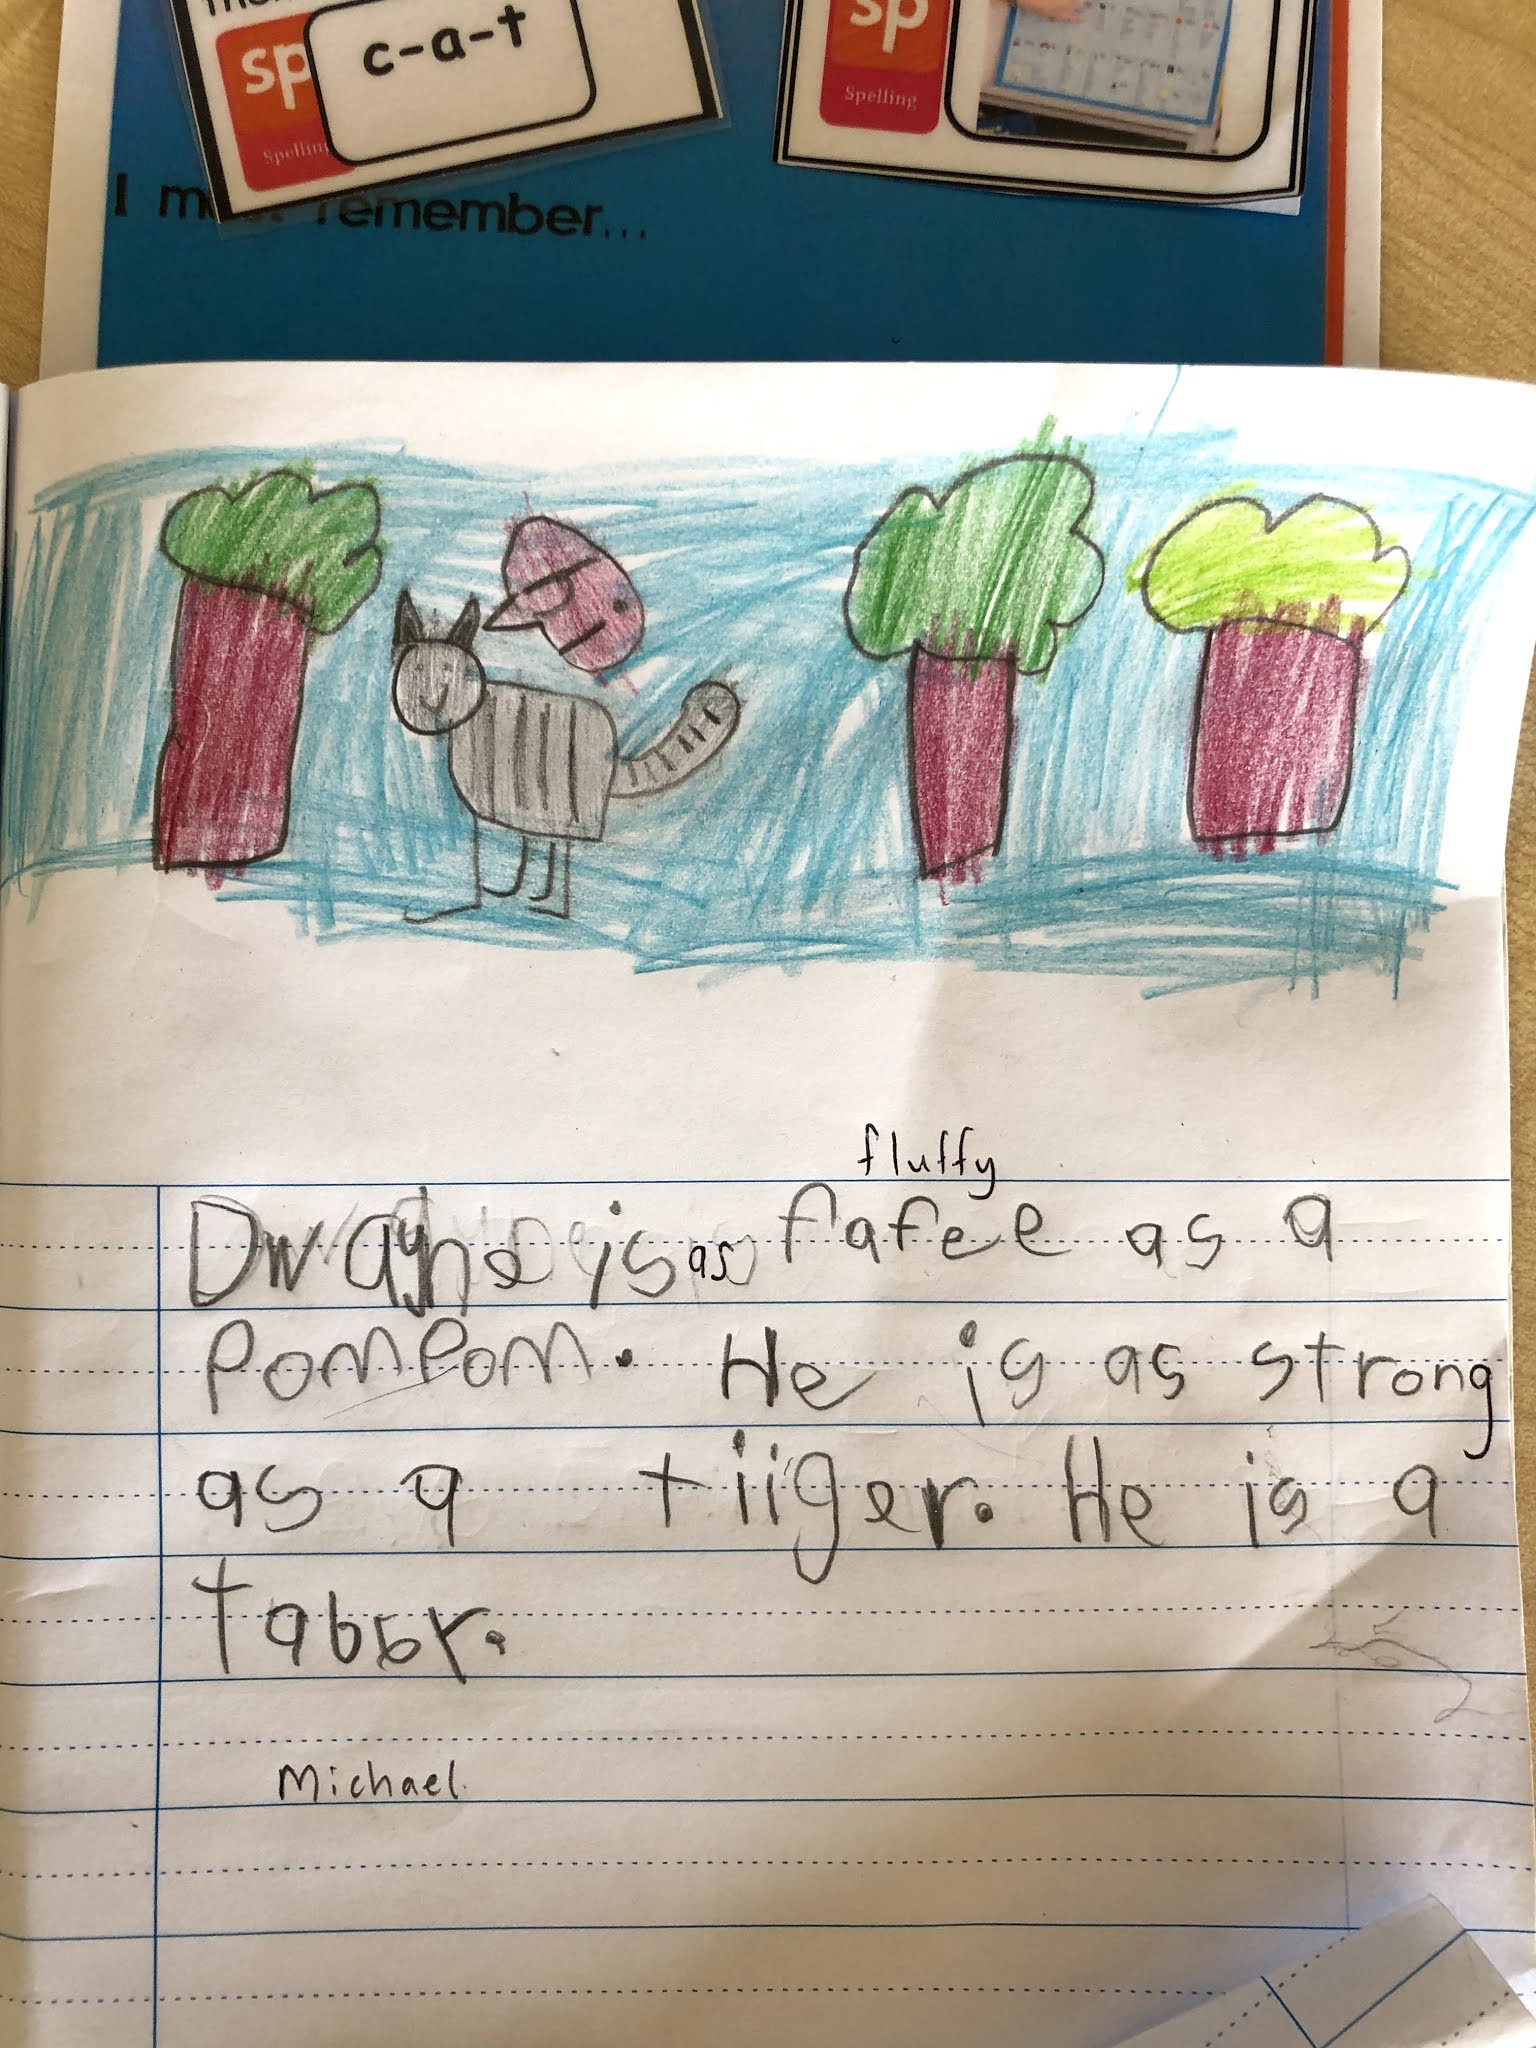 c-a-t
sp
Spelling
sp
Spelling
I remember...
fluffy
Dwayne is as fafee as a
PomPom. He is as strong
as a tiiger. He is a
tabbr.
Michael.